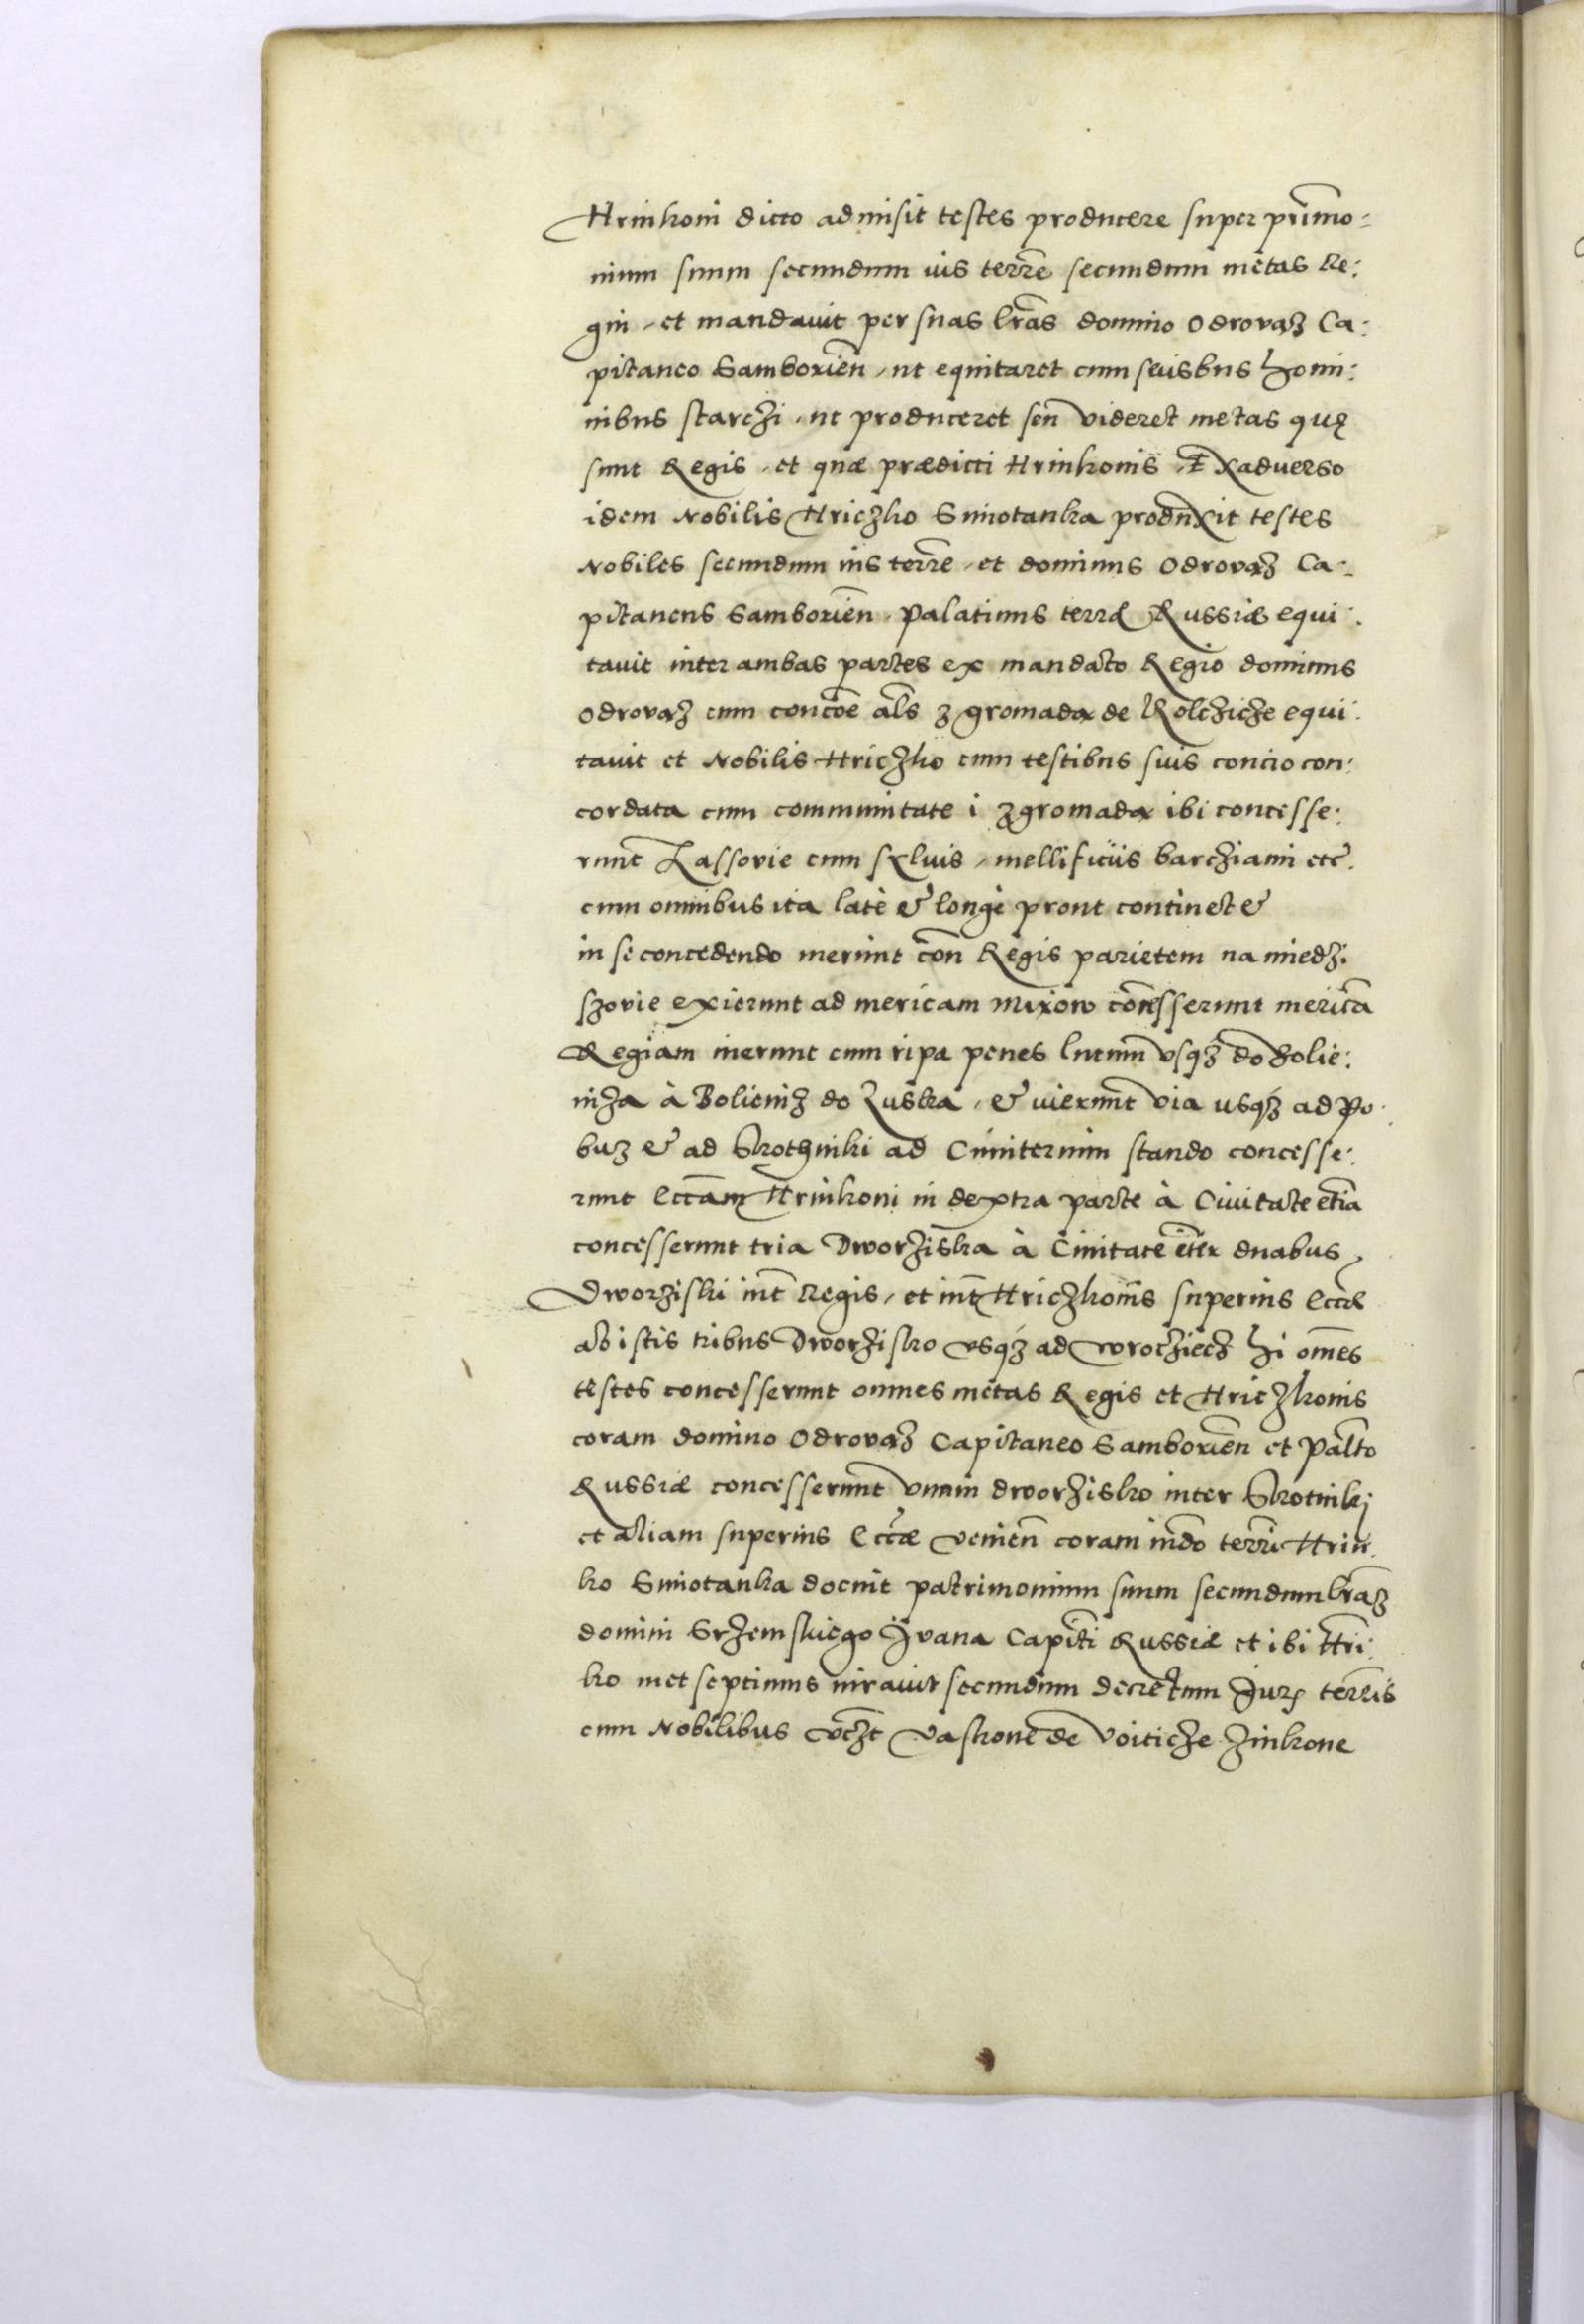 Hrinkoni dicto admisit testes producere super prīmo:
nium suum secundum ius terrē secundum metas Re:
gni, et mandauit per suas lrās domino Odrovąz Ca:
pitaneo Samboriēn, ut equitaret cum seuisbus homi:
nibus starczi, ut produceret seu videret metas quę
sunt Regis, et quæ prædicti Hrinkonis, Ex aduerso
idem Nobilis Hriczko Smotanka produxit testes
Nobiles secundum ius terrē, et dominus Odrovąz Ca:
pitaneus Samboriēn, Palatinus terræ Russiæ equi:
tauit inter ambas partes ex mandato Regio dominus
Odrovąz cum concōe als z gromadą de Kolczicze equi:
tauit et Nobilis Hriczko cum testibus suis concio con:
cordata cum communitate i zgromadą ibi concesse:
runt Zassovie cum syluis, mellificiis barcziami etc.
cum omnibus ita latè & longè prout continet &
in se concedendo inerunt cōn Regis parietem na miedzi
szovie exierunt ad mericam concesserunt mericā
Regiam inerunt cum ripa penes lutum vsqz do bolie:
niza à Bolieniz do Zuska, & uierunt via usqz ad Po:
buz & ad Skothniki ad Cimiterium stando concesse:
runt Eccām Hrinkoni in dextra parte à Ciuitate etiā
concesserunt tria Dworziska à Ciuitate duabus
Dworziski int Regis, et int Hriczkonis superius Eccæ
ab istis tribus Dworzisko vsqz ad wrocziecz hi omēs
testes concesserunt omnes metas Regis et Hriczkonis
coram domino Odrovąz Capitaneo Samboriēn et Palto
Russiæ concesserunt vnum dworzisko inter Skotniki
et aliam superius Eccæ veniēn coram iudō terrī Hrin
ko Smotanka docuit patrimonium suum secundum lrāz
domini Srzemskiego Jvana Capiti Russiæ et ibi Hri:
ko met septimus iurauit secundum decretum Jurz terrīs
cum Nobilibus vczt Vaskone de Voiticze Zinkone